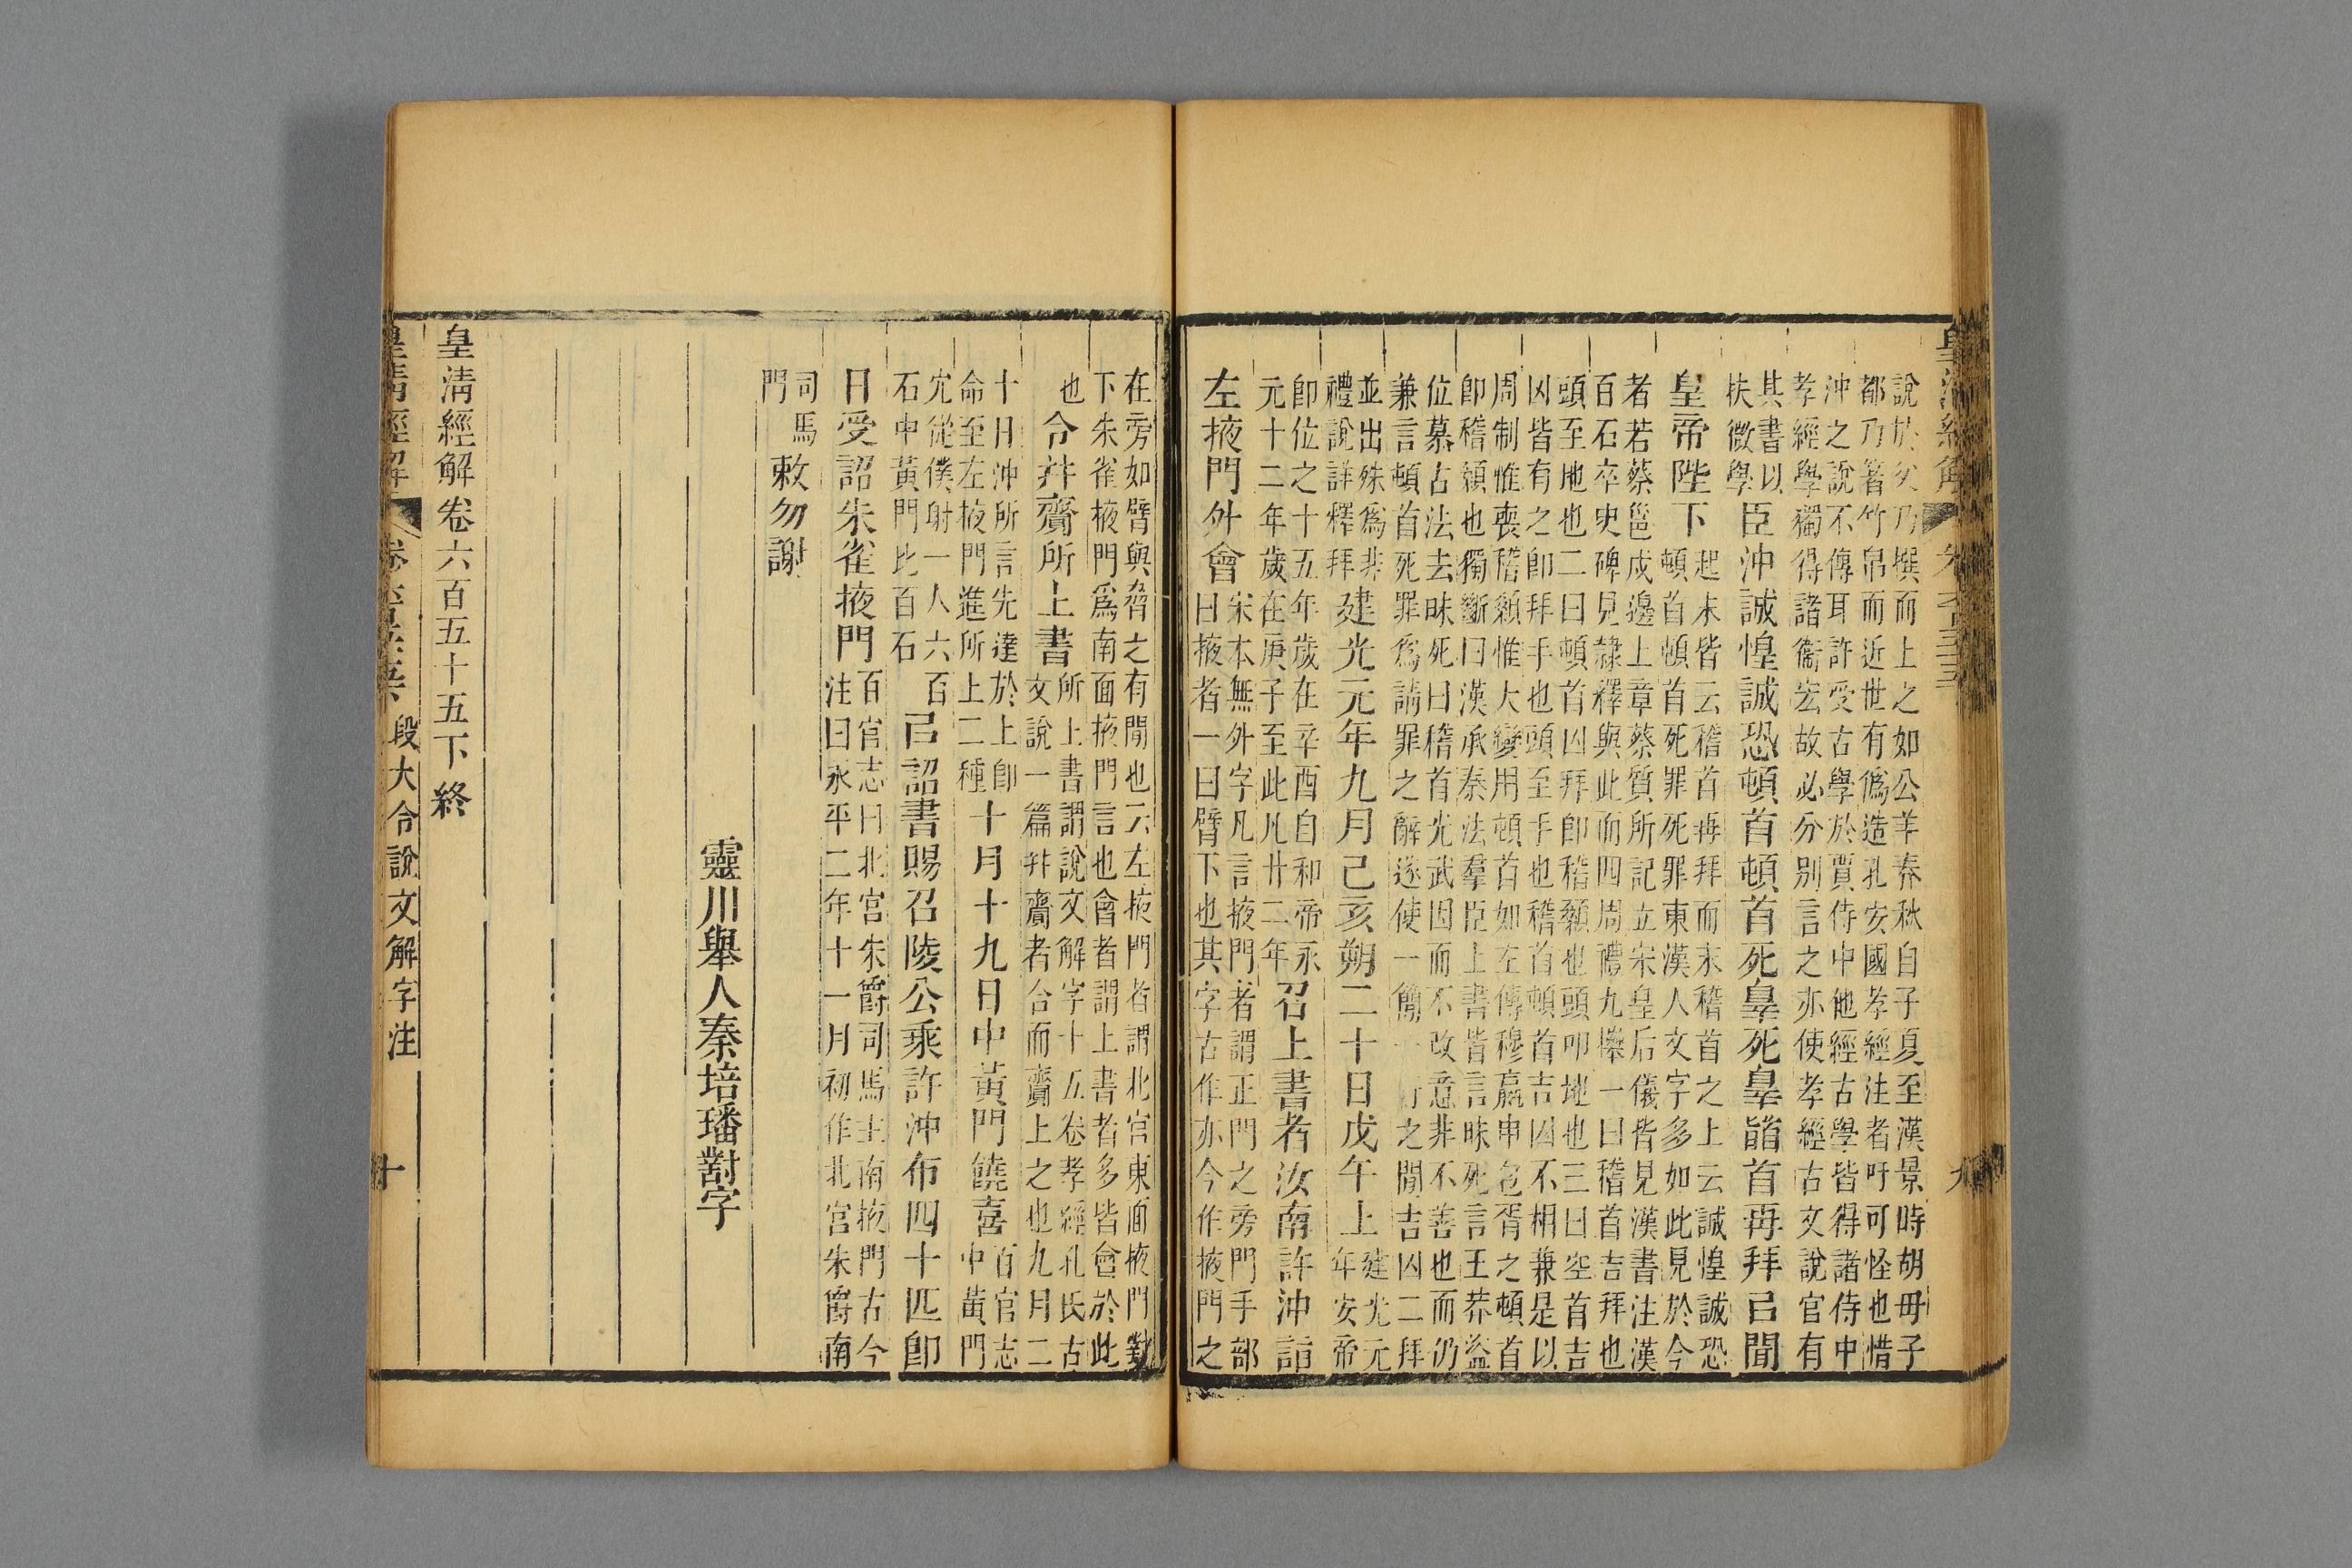 說於父乃撰而上之如公羊春秋自子夏至漢景時胡毋子
都乃箸竹帛而近世有僞造孔安國孝經注者吁可怪也惜
沖之說不傳耳許受古學於賈侍中他經古學皆得諸侍中
孝經學獨得諸衞宏故必分別言之亦使孝經古文說官有
其書以
扶微學
臣沖誠惶誠恐頓首頓首死辠死辠𩒨首再拜㠯聞
皇帝陛下
起末皆云稽首再拜而末稽首之上云誠惶誠恐
頓首頓首死罪死罪東漢人文字多如此見於今
者若蔡邕戍邊上章蔡質所記立宋皇后儀皆見漢書注漢
百石卒史碑見隸釋與此而四周禮九𢷎一曰稽首吉拜也
頭至地也二曰頓首凶拜卽稽顙也頭叩地也三曰空首吉
凶皆有之卽拜手也頭至手也稽首頓首吉凶不相兼是以
周制惟喪稽顙惟大變用頓首如左傳穆嬴申包胥之頓首
卽稽顙也獨斷曰漢承秦法羣臣上書皆言昧死言王莽盜
位慕古法去昧死曰稽首光武因而不改意非不善也而仍
兼言頓首死罪爲請罪之辭遂使一簡一行之閒吉凶二拜
並出殊爲非
禮說詳釋拜
建光元年九月己亥朔二十日戊午上
建光元
年安帝
卽位之十五年歲在辛酉自和帝永
元十二年歲在庚子至此凡廿二年
召上書者汝南許沖詣
左掖門外會
宋本無外字凡言掖門者謂正門之旁門手部
曰掖者一曰臂下也其字古作亦今作掖門之
在旁如臂與脅之有閒也云左掖門者謂北宮東面掖門對
下朱雀掖門爲南面掖門言也會者謂上書者多皆會於此
也
令幷齎所上書
所上書謂說文解字十五卷孝經孔氏古
文說一篇幷齎者合而齎上之也九月二
十日沖所言先達於上卽
命至左掖門進所上二種
十月十九日中黃門饒喜
百官志
中黃門
宂從僕射一人六百
石中黃門比百石
㠯詔書賜召陵公乘許沖布四十匹卽
日受詔朱雀掖門
百官志曰北宮朱爵司馬主南掖門古今
注曰永平二年十一月初作北宮朱爵南
司馬
門
敕勿謝
靈川舉人秦培璠對字
皇清經解卷六百五十五下終
皇清經解
段大令說文解字注
十